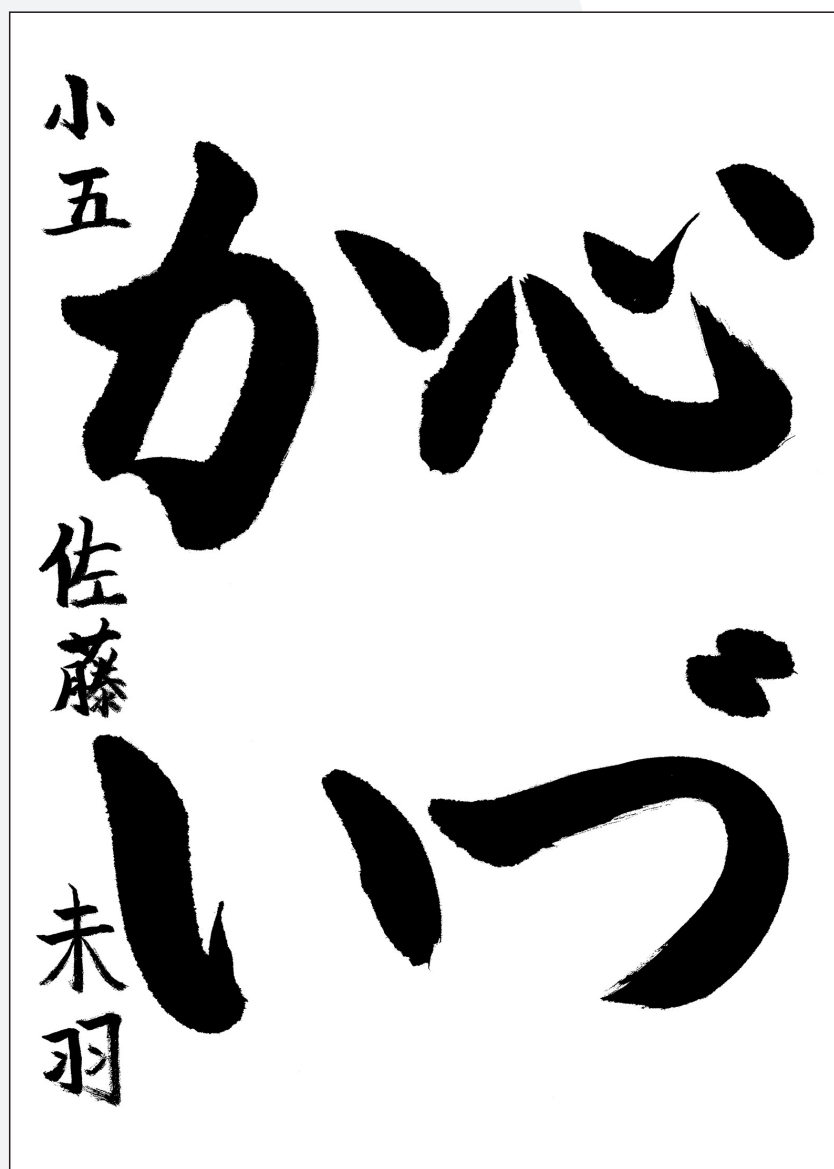 心づ
かい
小五 佐藤 未羽